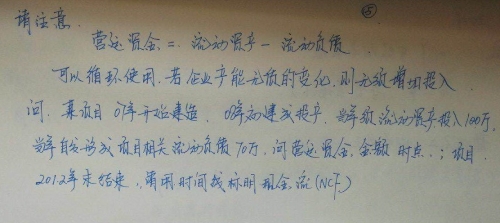 请注意. ⑤
营运资金 = 流动资产 - 流动负债
可以循环使用.若企业产能无质的变化,则无须增加投入
问.某项目 07年开始建造. 09年初建成投产.当年需流动资产投入100万,
当年自发形成项目相关流动负债70万.问营运资金.金额 时点.;项目
2012年末结束,请用时间线标明现金流(NCF.)